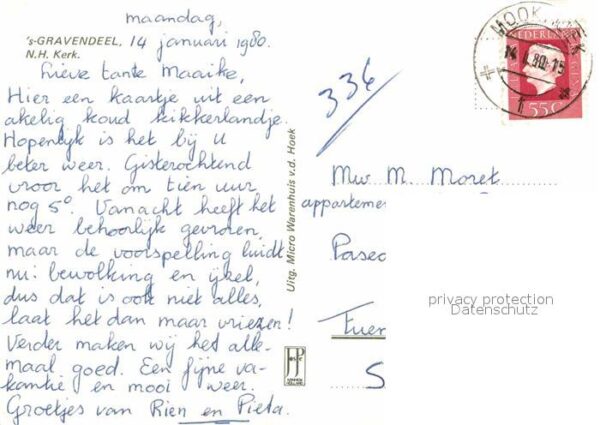 maandag,
's-GRAVENDEEL, 14 januari 1980.
N.H. Kerk.
Lieve tante Maaike,
Hier een kaartje uit een
akelig koud kikkerlandje.
Hopenlijk is het bij u
beter weer. Gisterochtend
vroor het om tien uur
nog 5°. Vanacht heeft het
weer behoorlijk gevroren,
maar de voorspelling luidt
nu: bewolking en ijzel,
dus dat is ook niet alles,
laat het dan maar vriezen!
Verder maken wij het alle-
maal goed. Een fijne va-
kantie en mooi weer.
Groetjes van Rien en Pieta.
Uitg. Micro Warenhuis v.d. Hoek
336
NEDERLAND
14 I.80.-15
1
55c
Mw M. Moret
appartemen
Paseo
privacy protection
Datenschutz
Fuen
S